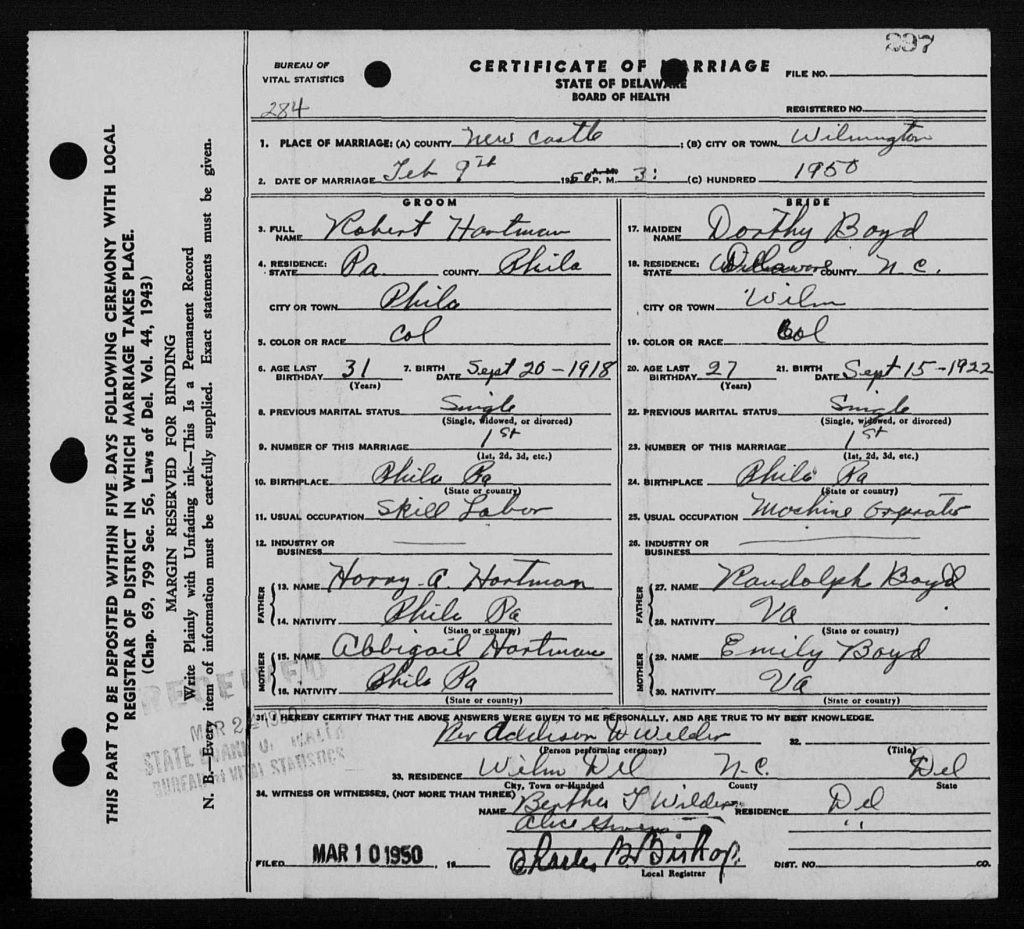 297
BUREAU OF VITAL STATISTICS
284
CERTIFICATE OF MARRIAGE
STATE OF DELAWARE
BOARD OF HEALTH
FILE NO.
REGISTERED NO.
1. PLACE OF MARRIAGE: (A) COUNTY New Castle ; (B) CITY OR TOWN Wilmington
2. DATE OF MARRIAGE Feb 9th 1950 A. M. P. M. 3: (C) HUNDRED 1950
GROOM
3. FULL NAME Robert Hartman
4. RESIDENCE: STATE Pa. COUNTY Phila
CITY OR TOWN Phila
5. COLOR OR RACE Col
6. AGE LAST BIRTHDAY 31 (Years) 7. BIRTH DATE Sept 20-1918
8. PREVIOUS MARITAL STATUS Single
(Single, widowed, or divorced)
9. NUMBER OF THIS MARRIAGE 1st
(1st, 2d, 3d, etc.)
10. BIRTHPLACE Phila Pa
(State or country)
11. USUAL OCCUPATION Skill Labor
12. INDUSTRY OR BUSINESS
FATHER
13. NAME Harry A. Hartman
14. NATIVITY Phila Pa
(State or country)
MOTHER
15. NAME Abbigail Hartman
16. NATIVITY Phila Pa
(State or country)
BRIDE
17. MAIDEN NAME Dorthy Boyd
18. RESIDENCE: STATE Delaware COUNTY N.C.
CITY OR TOWN Wilm
19. COLOR OR RACE Col
20. AGE LAST BIRTHDAY 27 (Years) 21. BIRTH DATE Sept 15-1922
22. PREVIOUS MARITAL STATUS Single
(Single, widowed, or divorced)
23. NUMBER OF THIS MARRIAGE 1st
(1st, 2d, 3d, etc.)
24. BIRTHPLACE Phila Pa
(State or country)
25. USUAL OCCUPATION Machine Operator
26. INDUSTRY OR BUSINESS
FATHER
27. NAME Randolph Boyd
28. NATIVITY Va
(State or country)
MOTHER
29. NAME Emily Boyd
30. NATIVITY Va
(State or country)
31. I HEREBY CERTIFY THAT THE ABOVE ANSWERS WERE GIVEN TO ME PERSONALLY, AND ARE TRUE TO MY BEST KNOWLEDGE.
Rev Addison W Wilder 32.
(Person performing ceremony) (Title)
33. RESIDENCE Wilm Del N.C. Del
City, Town or Hundred County State
34. WITNESS OR WITNESSES, (NOT MORE THAN THREE)
NAME Berthea T Wilder RESIDENCE Del
Alice "
FILED MAR 10 1950 , 19 Charles B. Bishop.
Local Registrar
DIST. NO. CO.
THIS PART TO BE DEPOSITED WITHIN FIVE DAYS FOLLOWING CEREMONY WITH LOCAL
REGISTRAR OF DISTRICT IN WHICH MARRIAGE TAKES PLACE.
(Chap. 69, 799 Sec. 56, Laws of Del. Vol. 44, 1943)
MARGIN RESERVED FOR BINDING
Write Plainly with Unfading ink—This Is a Permanent Record
N. B.—Every item of information must be carefully supplied. Exact statements must be given.
RECEIVED
MAR 24 1950
STATE BOARD OF HEALTH
BUREAU OF VITAL STATISTICS